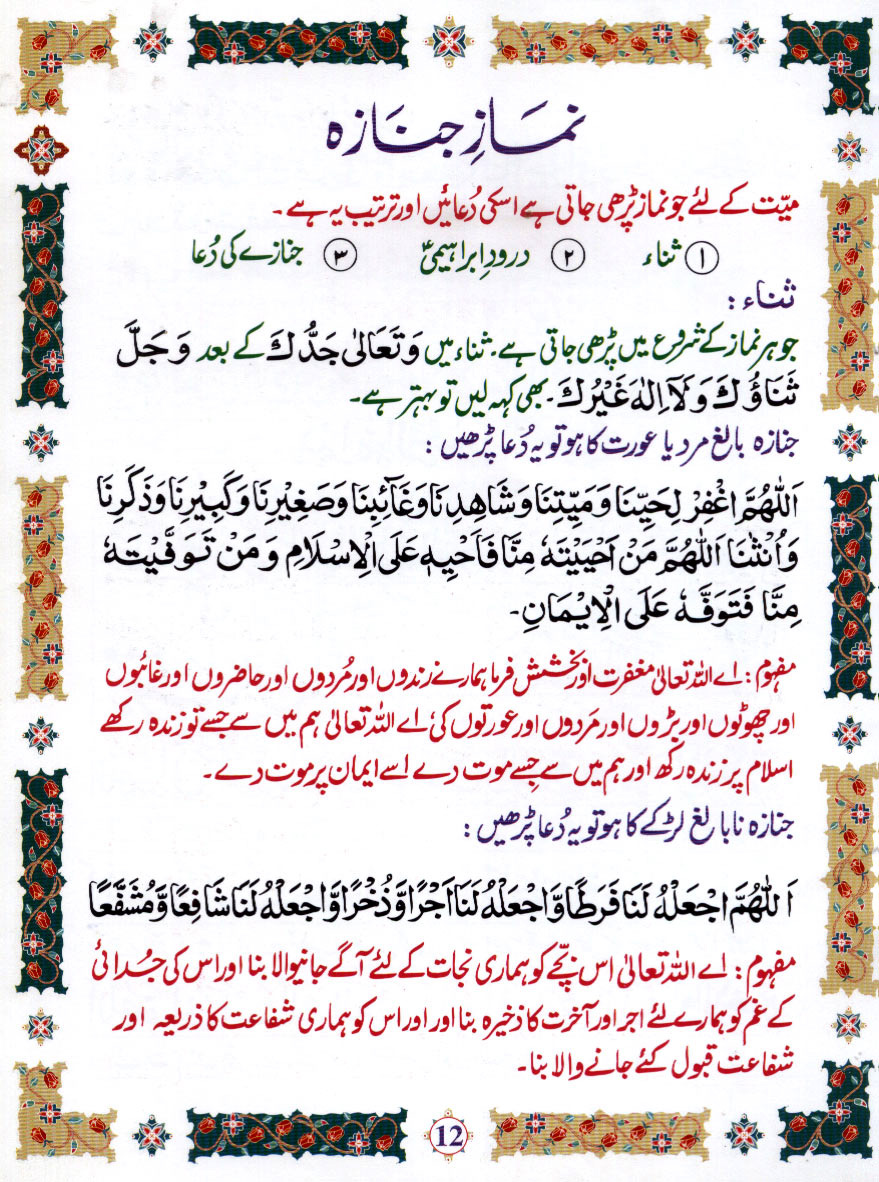 نمازِ جنازہ
میّت کے لئے جو نماز پڑھی جاتی ہے اسکی دُعائیں اور ترتیب یہ ہے ۔
۱ ثناء ۲ درودِ ابراہیمیؑ ۳ جنازے کی دُعا
ثناء :
جو ہر نماز کے شروع میں پڑھی جاتی ہے۔ ثناء میں وَتَعَالٰی جَدُّكَ کے بعد وَجَلَّ
ثَنَاؤُكَ وَلَآ اِلٰهَ غَيْرُكَ۔ بھی کہہ لیں تو بہتر ہے۔
جنازہ بالغ مرد یا عورت کا ہو تو یہ دُعا پڑھیں :
اَللّٰهُمَّ اغْفِرْ لِحَيِّنَا وَمَيِّتِنَا وَشَاهِدِنَا وَغَآئِبِنَا وَصَغِيْرِنَا وَكَبِيْرِنَا وَذَكَرِنَا
وَاُنْثٰنَا اَللّٰهُمَّ مَنْ اَحْيَيْتَهٗ مِنَّا فَاَحْيِهٖ عَلَى الْاِسْلَامِ وَمَنْ تَوَفَّيْتَهٗ
مِنَّا فَتَوَفَّهٗ عَلَى الْاِيْمَانِ۔
مفہوم : اے اللہ تعالیٰ مغفرت اور بخشش فرما ہمارے زندوں اور مُردوں اور حاضروں اور غائبوں
اور چھوٹوں اور بڑوں اور مَردوں اور عورتوں کی اے اللہ تعالیٰ ہم میں سے جسے تو زندہ رکھے
اسلام پر زندہ رکھ اور ہم میں سے جسے موت دے اسے ایمان پر موت دے۔
جنازہ نابالغ لڑکے کا ہو تو یہ دُعا پڑھیں :
اَللّٰهُمَّ اجْعَلْهُ لَنَا فَرَطًا وَّاجْعَلْهُ لَنَا اَجْرًا وَّذُخْرًا وَّاجْعَلْهُ لَنَا شَافِعًا وَّمُشَفَّعًا
مفہوم : اے اللہ تعالیٰ اس بچّے کو ہماری نجات کے لئے آگے جانیوالا بنا اور اس کی جدائی
کے غم کو ہمارے لئے اجر اور آخرت کا ذخیرہ بنا اور اور اس کو ہماری شفاعت کا ذریعہ اور
شفاعت قبول کئے جانے والا بنا۔
12